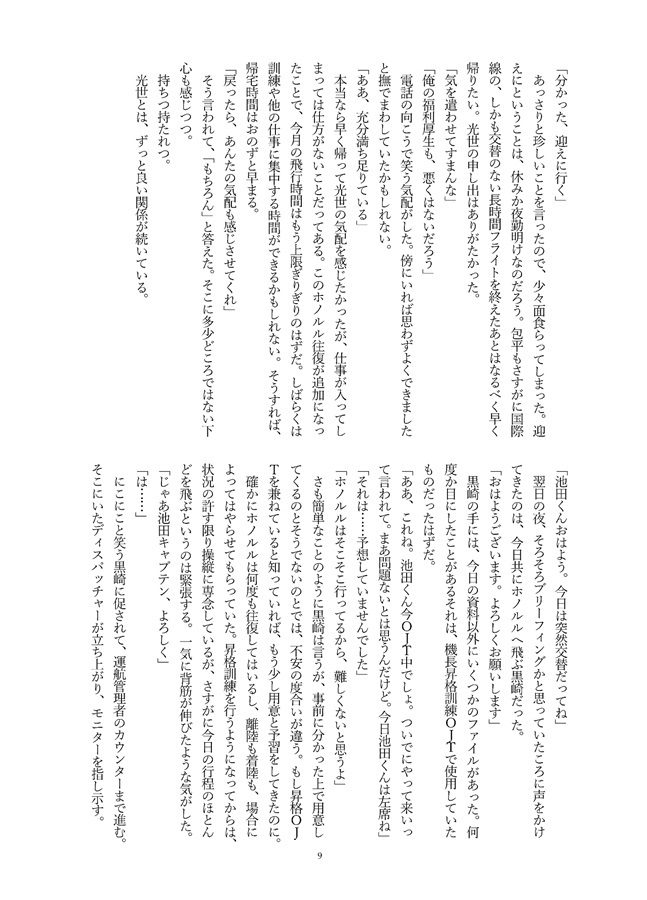 「分かった、迎えに行く」
　あっさりと珍しいことを言ったので、少々面食らってしまった。迎
えにということは、休みか夜勤明けなのだろう。包平もさすがに国際
線の、しかも交替のない長時間フライトを終えたあとはなるべく早く
帰りたい。光世の申し出はありがたかった。
「気を遣わせてすまんな」
「俺の福利厚生も、悪くはないだろう」
　電話の向こうで笑う気配がした。傍にいれば思わずよくできました
と撫でまわしていたかもしれない。
「ああ、充分満ち足りている」
　本当なら早く帰って光世の気配を感じたかったが、仕事が入ってし
まっては仕方がないことだってある。このホノルル往復が追加になっ
たことで、今月の飛行時間はもう上限ぎりぎりのはずだ。しばらくは
訓練や他の仕事に集中する時間ができるかもしれない。そうすれば、
帰宅時間はおのずと早まる。
「戻ったら、あんたの気配も感じさせてくれ」
　そう言われて、「もちろん」と答えた。そこに多少どころではない下
心も感じつつ。
　持ちつ持たれつ。
　光世とは、ずっと良い関係が続いている。
「池田くんおはよう。今日は突然交替だってね」
　翌日の夜、そろそろブリーフィングかと思っていたころに声をかけ
てきたのは、今日共にホノルルへ飛ぶ黒崎だった。
「おはようございます。よろしくお願いします」
　黒崎の手には、今日の資料以外にいくつかのファイルがあった。何
度か目にしたことがあるそれは、機長昇格訓練ＯＪＴで使用していた
ものだったはずだ。
「ああ、これね。池田くん今ＯＪＴ中でしょ。ついでにやって来いっ
て言われて。まあ問題ないとは思うんだけど。今日池田くんは左席ね」
「それは……予想していませんでした」
「ホノルルはそこそこ行ってるから、難しくないと思うよ」
　さも簡単なことのように黒崎は言うが、事前に分かった上で用意し
てくるのとそうでないのとでは、不安の度合いが違う。もし昇格ＯＪ
Ｔを兼ねていると知っていれば、もう少し用意と予習をしてきたのに。
　確かにホノルルは何度も往復してはいるし、離陸も着陸も、場合に
よってはやらせてもらっていた。昇格訓練を行うようになってからは、
状況の許す限り操縦に専念しているが、さすがに今日の行程のほとん
どを飛ぶというのは緊張する。一気に背筋が伸びたような気がした。
「じゃあ池田キャプテン、よろしく」
「は……」
　にこにこと笑う黒崎に促されて、運航管理者のカウンターまで進む。
そこにいたディスパッチャーが立ち上がり、モニターを指し示す。
9